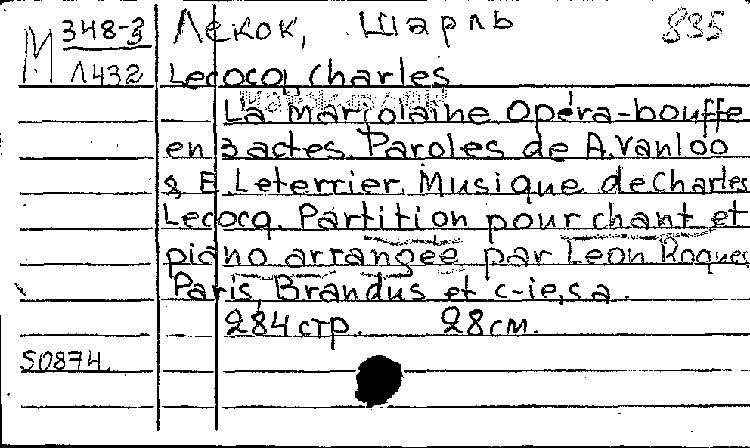 М 348-3
Л432
Лекок, Шарль 835
Lecocq, Charles
La Marjolaine. Opéra-bouffe
en 3 actes. Paroles de A. Vanloo
& E. Leterrier. Musique de Charles
Lecocq. Partition pour chant et
piano arrangée par Leon Roques
Paris, Brandus et c-ie, s.a.
284 стр. 28 см.
50874.